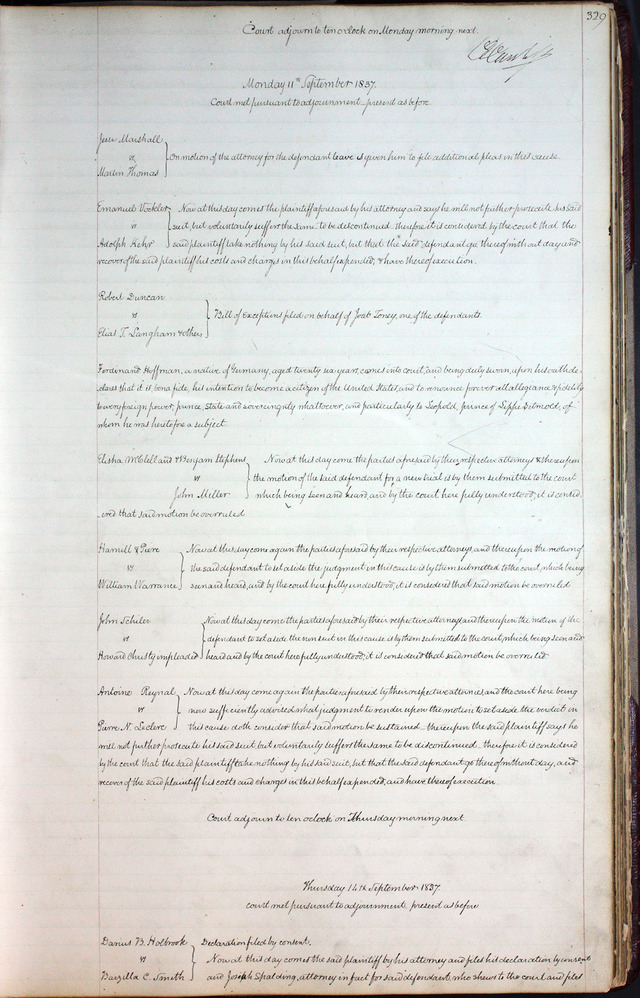 329
Court adjourn to ten o'clock on Monday morning next.
Monday 11th September 1837.
Court met pursuant to adjournment present as before
Jesse Marshall
vs
Martin Thomas
On motion of the attorney for the defendant leave is given him to file additional pleas in this cause.
Emanuel
vs
Adolph Kehr
Now at this day comes the plaintiff aforesaid by his attorney and says he will not further prosecute his said
suit, but voluntarily suffers the same to be discontinued therefore it is considered by the court that the
said plaintiff take nothing by his said suit, but that the said defendant go thereof without day and
recover of the said plaintiff his costs and charges in this behalf expended, & have thereof execution.
Robert Duncan
vs
Elias T. Langham & others
Bill of Exceptions filed on behalf of Joab Toney, one of the defendants.
Ferdinand Hoffman, a native of Germany, aged twenty six years, comes into court, and being duly sworn, upon his oath de-
clares that it is, bona fide, his intention to become a citizen of the United States, and to renounce forever all allegiance & fidelity
to every foreign power, prince, State and sovereignty whatsoever, and particularly to Leopold, prince of Lippe Detmold, of
whom he was heretofore a subject
Elisha McClelland & Benjam Stephens
vs
John Miller
Now at this day come the parties aforesaid by their respective attorneys & thereupon
the motion of the said defendant for a new trial is by them submitted to the court
which being seen and heard, and by the court here fully understood, it is consid
ered that said motion be overruled
Hamill &
vs
William Warrance
Now at this day come again the parties aforesaid by their respective attorneys, and thereupon the motion of
the said defendant to set aside the judgment in this cause is by them submitted to the court, which being
seen and heard, and by the court here fully understood, it is considered that said motion be overruled
John Schuler
vs
Howard Christy impleaded
Now at this day come the parties aforesaid by their respective attorneys and thereupon the motion of the
defendant to set aside the non suit in this cause is by them submitted to the court, which being seen and
heard and by the court here fully understood, it is considered that said motion be overruled
Antoine Reynal
vs
Pierre N. Leclerc
Now at this day come again the parties aforesaid by their respective attornies and the court here being
now sufficiently advised what judgment to render upon the motion to set aside the verdict in
this cause doth consider that said motion be sustained thereupon the said plaintiff says he
will not further prosecute his said suit, but voluntarily suffers the same to be discontinued therefore it is considered
by the court that the said plaintiff take nothing by his said suit, but that the said defendant go thereof without day, and
recover of the said plaintiff his costs and charges in this behalf expended, and have thereof execution.
Court adjourn to ten oclock on Thursday morning next.
Thursday 14th September 1837.
court met pursuant to adjournment, present as before
Darius B. Holbrook
vs
Barzilla C. Smith
Declaration filed by consent.
Now at this day comes the said plaintiff by his attorney and files his declaration by consent
and Joseph Spalding, attorney in fact for said defendant, who shews to the court and files